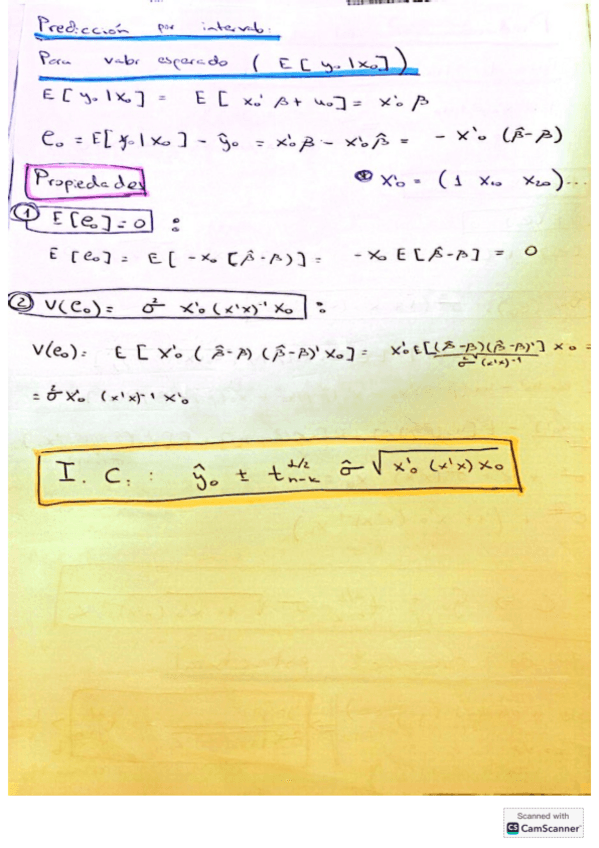 Predicción por intervalo:
Para valor esperado ( E[ y₀ | x₀ ] )
E[ y₀ | x₀ ] = E[ x₀' β + u₀ ] = x₀' β
e₀ = E[ y₀ | x₀ ] - ŷ₀ = x₀'β - x₀'β̂ = - x₀' (β̂-β)
Propiedades
x₀' = ( 1 x₁₀ x₂₀ )...
① E[e₀] = 0 :
E[e₀] = E[ -x₀ [β̂-β) ] = -x₀ E[β̂-β] = 0
② V(e₀) = σ² x₀' (x'x)⁻¹ x₀ :
V(e₀) = E[ x₀' (β̂-β) (β̂-β)' x₀ ] = x₀' E[(β̂-β)(β̂-β)'] x₀ =
σ² (x'x)⁻¹
= σ² x₀' (x'x)⁻¹ x₀'
I. C. : ŷ₀ ± t_{n-k}^{α/2} σ̂ √x₀' (x'x) x₀
Scanned with
CS CamScanner